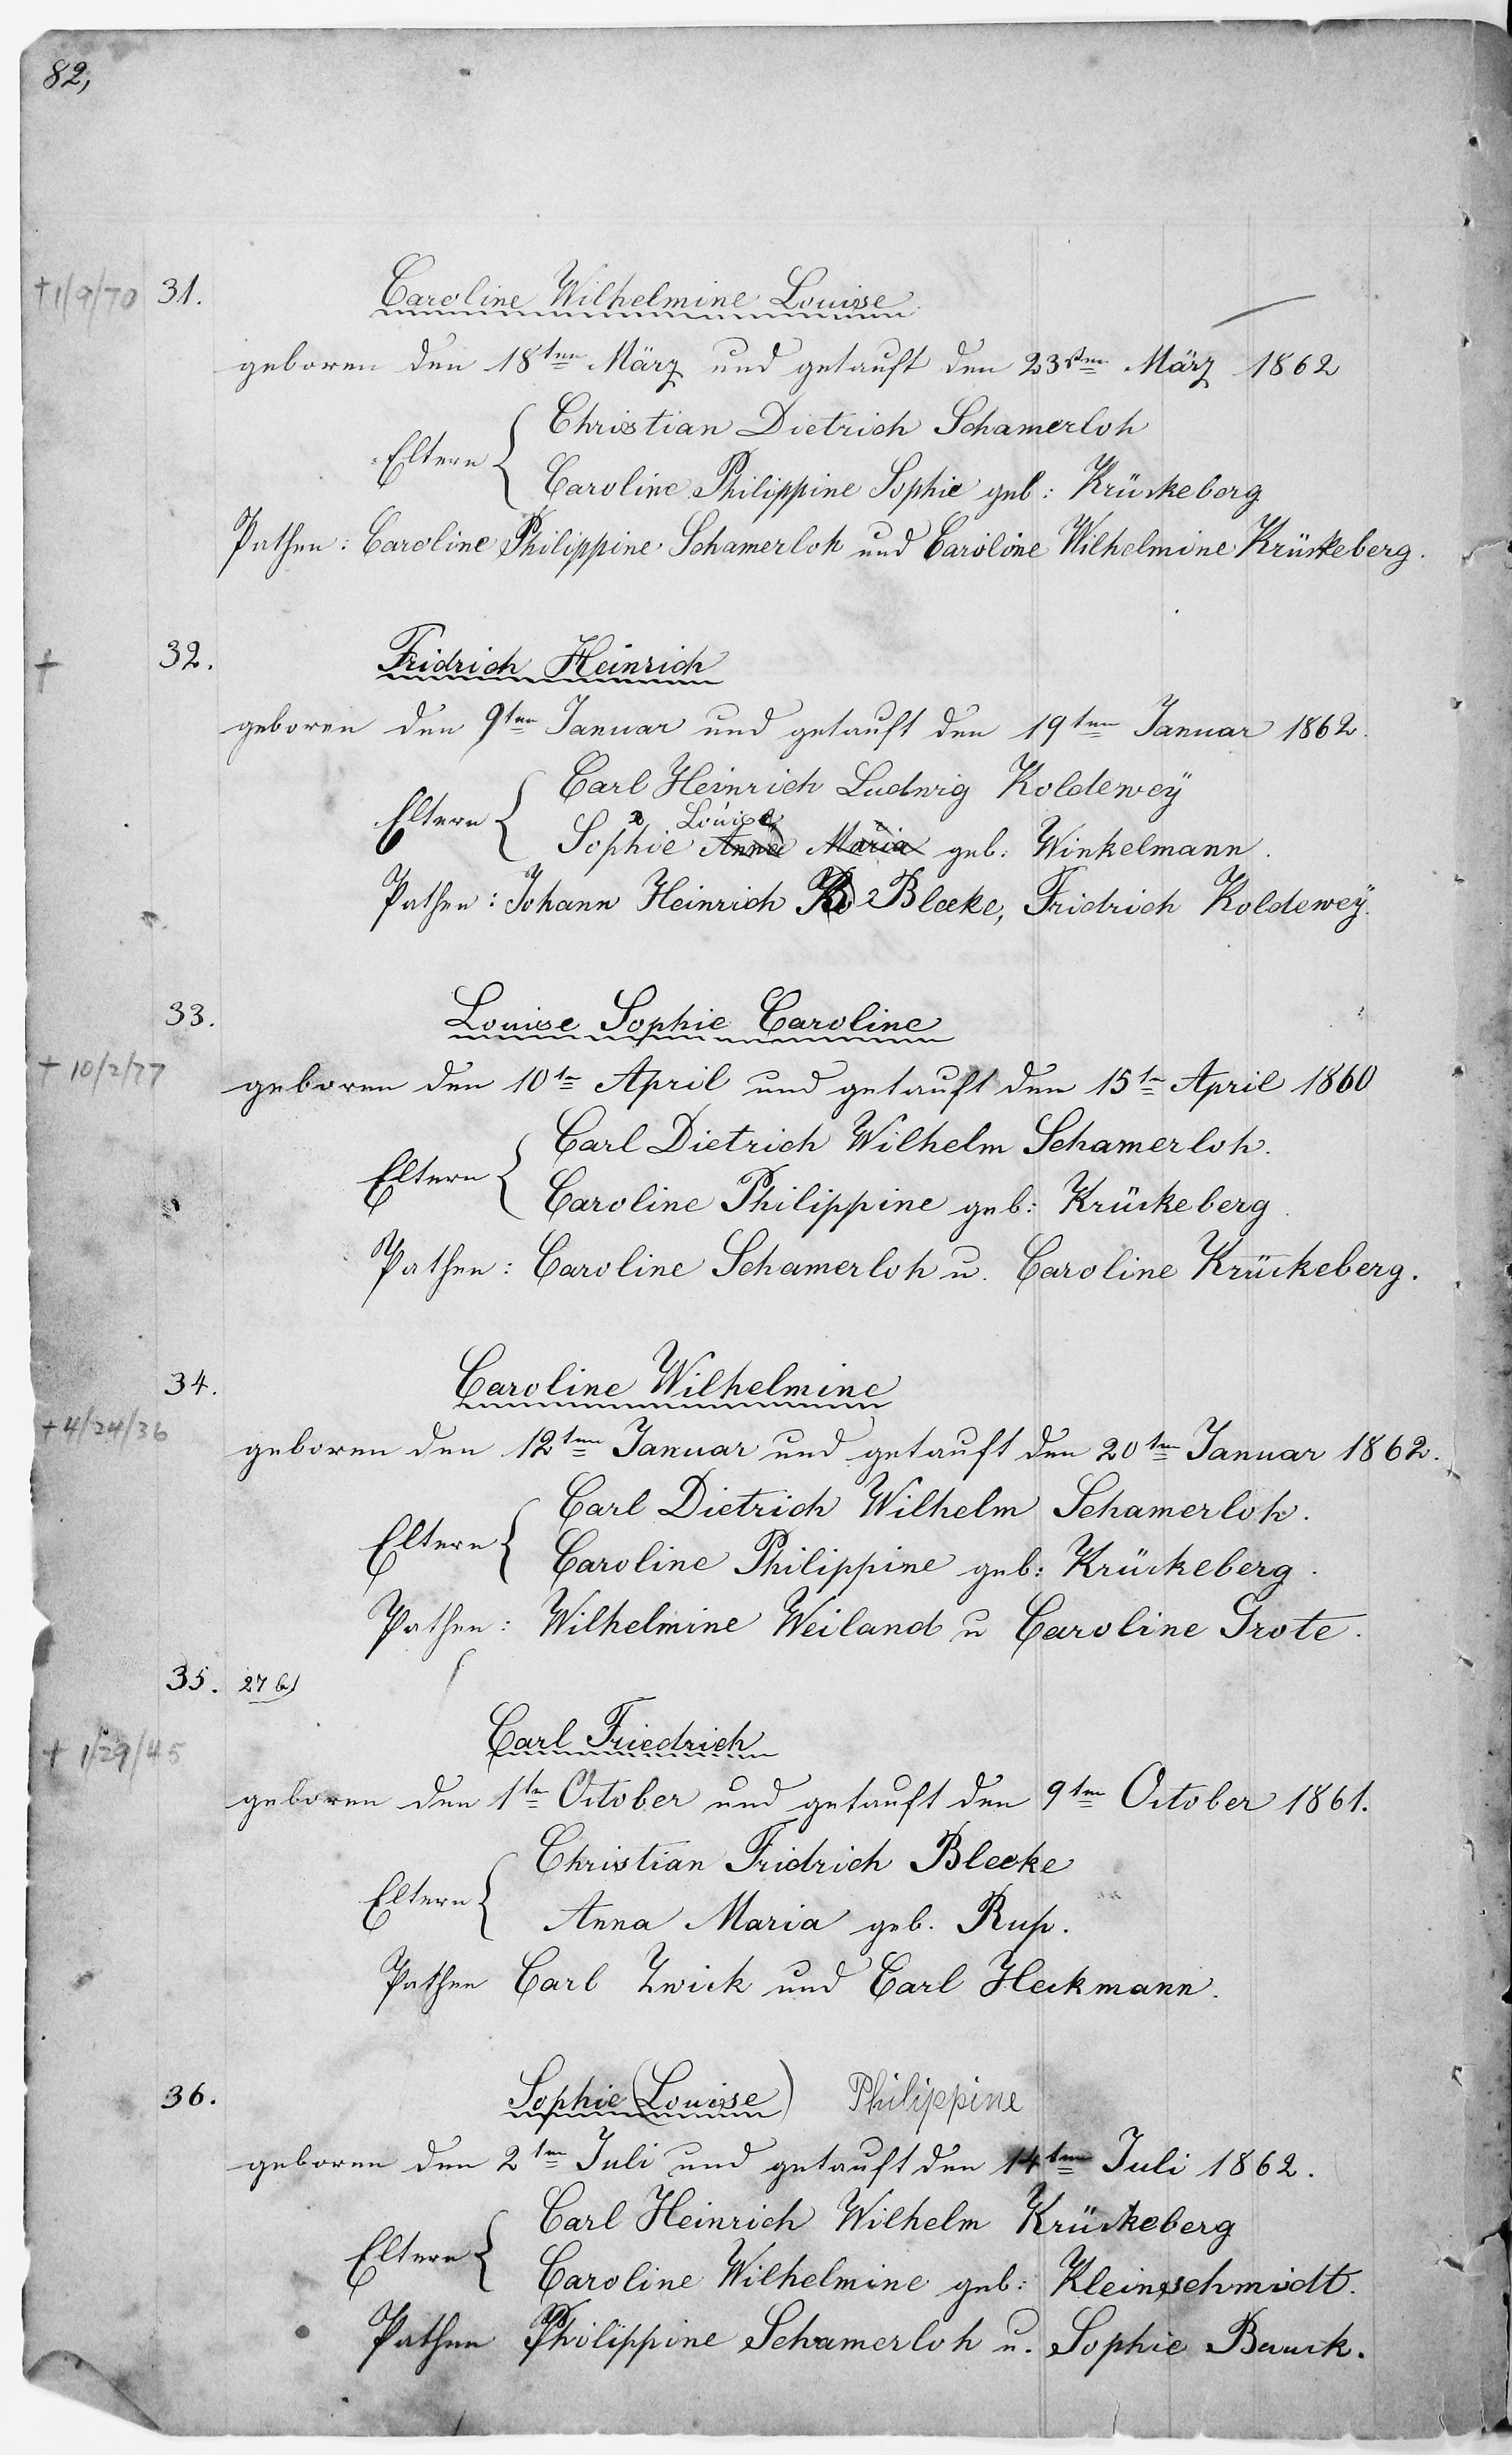 82,
+1/9/70 31. Caroline Wilhelmine Louise
geboren den 18ten März und getauft den 23sten März 1862
Eltern { Christian Dietrich Schamerloh
Caroline Philippine Sophie geb: Krückeberg
Pathen: Caroline Philippine Schamerloh und Caroline Wilhelmine Krückeberg.
+ 32. Fridrich Heinrich
geboren den 9ten Januar und getauft den 19ten Januar 1862.
Eltern { Carl Heinrich Ludwig Koldewey
Louise
Sophie Anna Maria geb: Winkelmann.
Pathen: Johann Heinrich Blecke, Fridrich Koldewey.
33. Louise Sophie Caroline
+ 10/2/77
geboren den 10tn April und getauft den 15tn April 1860
Eltern { Carl Dietrich Wilhelm Schamerloh.
Caroline Philippine geb: Krückeberg.
Pathen: Caroline Schamerloh u. Caroline Krückeberg.
34. Caroline Wilhelmine
+4/24/36
geboren den 12ten Januar und getauft den 20ten Januar 1862.
Eltern { Carl Dietrich Wilhelm Schamerloh.
Caroline Philippine geb: Krückeberg.
Pathen: Wilhelmine Weiland u Caroline Grote.
35. 27 b)
Carl Friedrich
+ 1/29/45
geboren den 1tn October und getauft den 9ten October 1861.
Eltern { Christian Fridrich Blecke
Anna Maria geb. Rup.
Pathen Carl Zwick und Carl Heckmann.
36. Sophie (Louise) Philippine
geboren den 2ten Juli und getauft den 14ten Juli 1862.
Eltern { Carl Heinrich Wilhelm Krückeberg
Caroline Wilhelmine geb: Kleinschmidt.
Pathen Philippine Schamerloh u. Sophie Bauck.